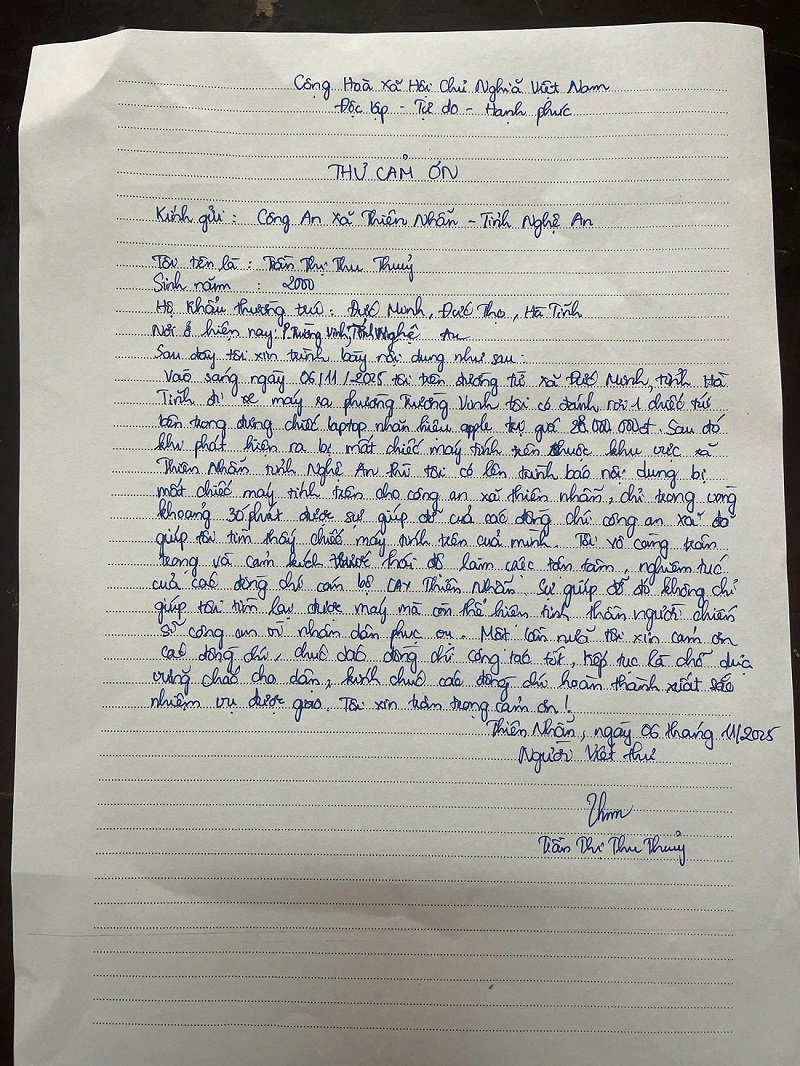 Cộng Hoà Xã Hội Chủ Nghĩa Việt Nam
Độc lập - Tự do - Hạnh phúc
THƯ CẢM ƠN
Kính gửi : Công An Xã Thiên Nhẫn - Tỉnh Nghệ An
Tôi tên là : Trần Thị Thu Thuỷ
Sinh năm : 2000
Hộ khẩu thường trú : Đức Minh, Đức Thọ, Hà Tĩnh
Nơi ở hiện nay : P. Trường Vinh, Tỉnh Nghệ An
Sau đây tôi xin trình bày nội dung như sau :
Vào sáng ngày 06/11/2025 tôi trên đường từ xã Đức Minh, tỉnh Hà
Tĩnh đi xe máy ra phường Trường Vinh tôi có đánh rơi 1 chiếc túi
bên trong đựng chiếc laptop nhãn hiệu apple trị giá 28.000.000đ. Sau đó
khi phát hiện ra bị mất chiếc máy tính trên thuộc khu vực xã
Thiên Nhẫn tỉnh Nghệ An thì tôi có lên trình báo nội dung bị
mất chiếc máy tính trên cho công an xã thiên nhẫn, chỉ trong vòng
khoảng 30 phát được sự giúp đỡ của các đồng chí công an xã đã
giúp tôi tìm thấy chiếc máy tính trên của mình. Tôi vô cùng trân
trọng và cảm kích trước thái độ làm việc tận tâm, nghiêm túc
của các đồng chí cán bộ CAX Thiên Nhẫn. Sự giúp đỡ đó không chỉ
giúp tôi tìm lại được máy mà còn thể hiện tinh thần người chiến
sĩ công an vì nhân dân phục vụ. Một lần nữa tôi xin cảm ơn
các đồng chí, chúc các đồng chí công tác tốt, tiếp tục là chỗ dựa
vững chắc cho dân, kính chúc các đồng chí hoàn thành xuất sắc
nhiệm vụ được giao. Tôi xin trân trọng cảm ơn !
Thiên Nhẫn, ngày 06 tháng 11/2025
Người Viết thư
Trần Thị Thu Thuỷ